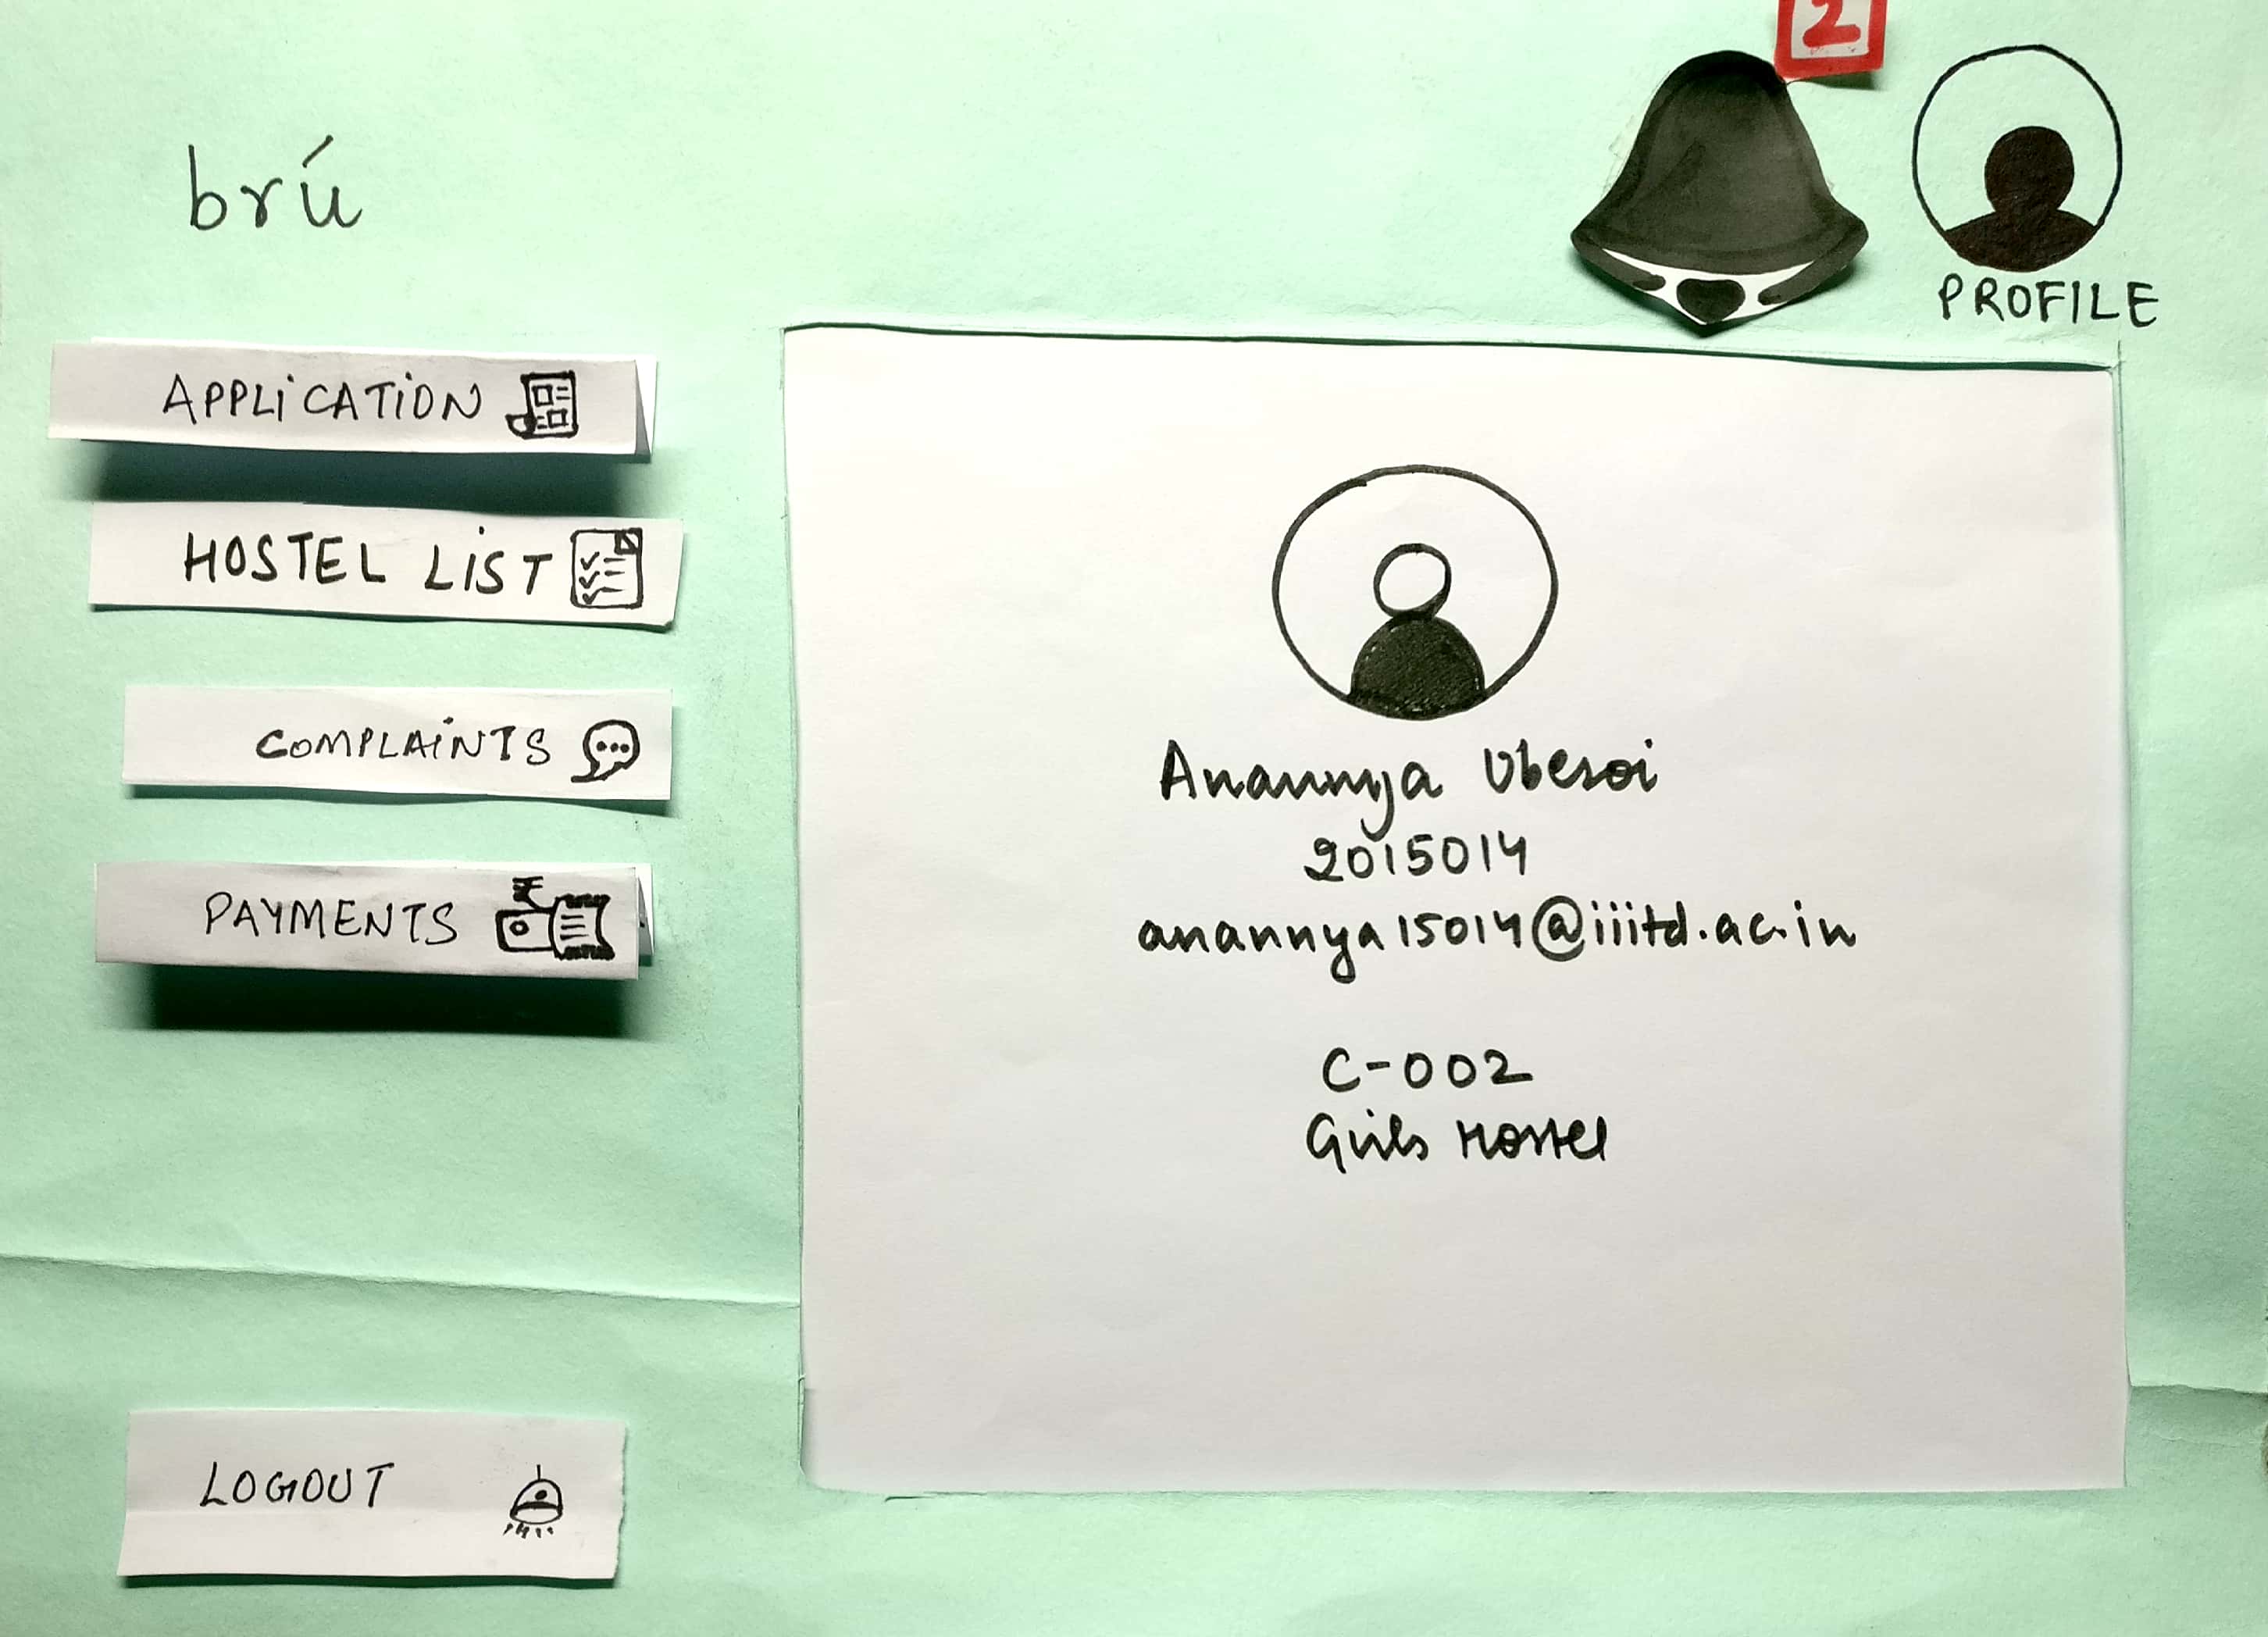 2
brú
PROFILE
APPLiCATiON
HOSTEL LiST
COMPLAiNTS
PAYMENTS
₹
LOGOUT
Anannya Uberoi
2015014
anannya15014@iiitd.ac.in
C-002
Girls Hostel